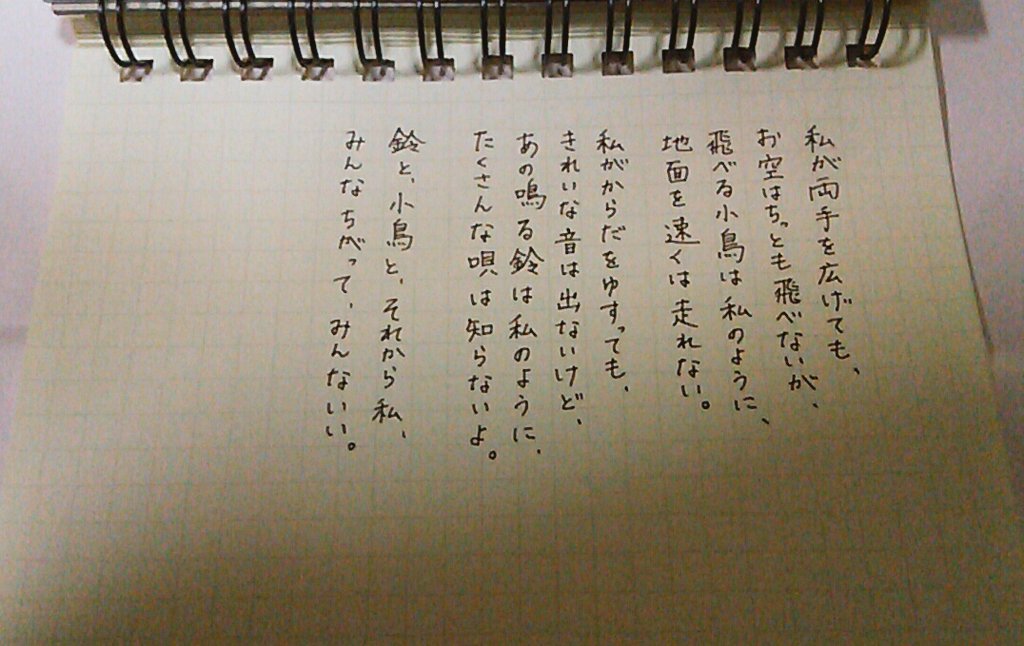 私が両手を広げても、
お空はちっとも飛べないが、
飛べる小鳥は私のように、
地面を速くは走れない。
私がからだをゆすっても、
きれいな音は出ないけど、
あの鳴る鈴は私のように、
たくさんな唄は知らないよ。
鈴と、小鳥と、それから私、
みんなちがって、みんないい。